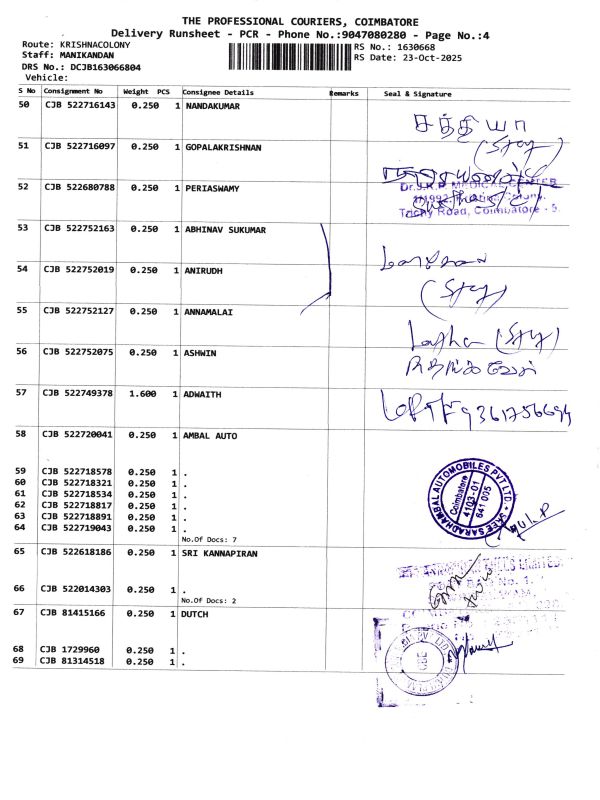 THE PROFESSIONAL COURIERS, COIMBATORE
Delivery Runsheet - PCR - Phone No.:9047080280 - Page No.:4
Route: KRISHNACOLONY
Staff: MANIKANDAN
DRS No.: DCJB163066804
Vehicle:
RS No.: 1630668
RS Date: 23-Oct-2025
S No Consignment No Weight PCS Consignee Details Remarks Seal & Signature
50 CJB 522716143 0.250 1 NANDAKUMAR
சத்தியா
51 CJB 522716097 0.250 1 GOPALAKRISHNAN
52 CJB 522680788 0.250 1 PERIASWAMY
MEDICAL CENTER
Trichy Road, Coimbatore - 5.
53 CJB 522752163 0.250 1 ABHINAV SUKUMAR
54 CJB 522752019 0.250 1 ANIRUDH
55 CJB 522752127 0.250 1 ANNAMALAI
56 CJB 522752075 0.250 1 ASHWIN
57 CJB 522749378 1.600 1 ADWAITH
9361756694
58 CJB 522720041 0.250 1 AMBAL AUTO
59 CJB 522718578 0.250 1 .
60 CJB 522718321 0.250 1 .
61 CJB 522718534 0.250 1 .
62 CJB 522718817 0.250 1 .
63 CJB 522718891 0.250 1 .
64 CJB 522719043 0.250 1 .
No.Of Docs: 7
SREE SARADHAMBAL AUTOMOBILES PVT LTD.
Coimbatore
4103-01
641 005
65 CJB 522618186 0.250 1 SRI KANNAPIRAN
MILLS LIMITED
66 CJB 522014303 0.250 1 .
No.Of Docs: 2
67 CJB 81415166 0.250 1 DUTCH
68 CJB 1729960 0.250 1 .
69 CJB 81314518 0.250 1 .